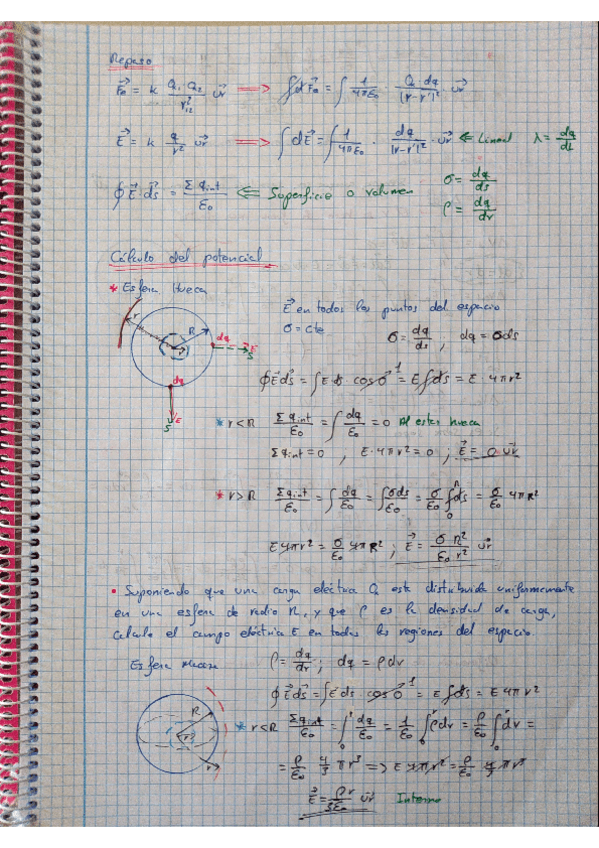 Repaso
F⃗e = k Q₁ Q₂ / r₁₂² u⃗r ⟹ ∫dF⃗e = ∫ 1/4πε₀ · Q₁ dq / |r-r'|² u⃗r
E⃗ = k q/r² u⃗r ⟹ ∫dE⃗ = ∫ 1/4πε₀ · dq/|r-r'|² · u⃗r ⟸ Lineal λ = dq/dl
∮ E⃗ ds⃗ = Σ qint / ε₀ ⟸ Superficie o volumen σ = dq/ds
ρ = dq/dv
Cálculo del potencial
* Esfera Hueca
E⃗ en todos los puntos del espacio
σ = cte σ = dq/ds ; dq = σ ds
r R dq E s
dq E s
∮E⃗ ds⃗ = ∫E ds cos θ 1 = E∮ds = E · 4πr²
* r<R Σ qint/ε₀ = ∫ dq/ε₀ = 0 Al estar hueca
Σ qint = 0 , E · 4πr² = 0 ; E⃗ = 0 u⃗r
* r>R Σ qint/ε₀ = ∫ dq/ε₀ = ∫ σds/ε₀ = σ/ε₀ ∫₀ᴿ ds = σ/ε₀ 4πR²
E 4πr² = σ/ε₀ 4πR² ; E⃗ = σ/ε₀ R²/r² u⃗r
• Suponiendo que una carga eléctrica Q está distribuida uniformemente
en una esfera de radio R, y que ρ es la densidad de carga,
calcula el campo eléctrico E en todas las regiones del espacio.
Esfera Maciza ρ = dq/dv ; dq = ρ dv
∮E⃗ ds⃗ = ∫E ds · cos θ 1 = E∮ds = E 4πr²
R r r
* r<R Σ qint/ε₀ = ∫₀ʳ dq/ε₀ = 1/ε₀ ∫₀ʳ ρ dv = ρ/ε₀ ∫₀ʳ dv =
= ρ/ε₀ 4/3 πr³ ⟹ E 4πr² = ρ/ε₀ 4/3 πr³
E⃗ = ρ r/3ε₀ u⃗r Interno